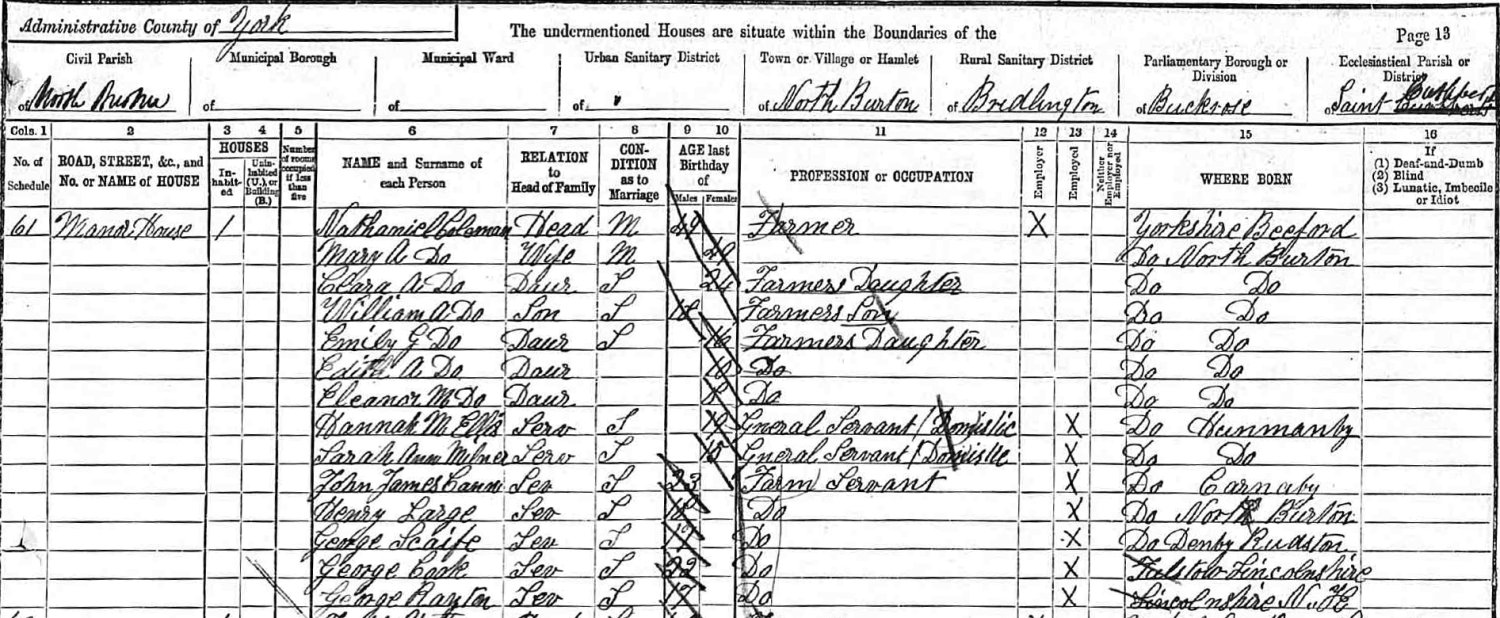 Administrative County of York
The undermentioned Houses are situate within the Boundaries of the
Page 13
Civil Parish Municipal Borough Municipal Ward Urban Sanitary District Town or Village or Hamlet Rural Sanitary District Parliamentary Borough or Division Ecclesiastical Parish or District
of North Burton of of of of North Burton of Bridlington of Buckrose of Saint Cuthberts
Cols. 1 2 3 4 5 6 7 8 9 10 11 12 13 14 15 16
No. of Schedule ROAD, STREET, &c., and No. or NAME of HOUSE HOUSES In-habit-ed Unin-habited (U.), or Building (B.) Number of rooms occupied if less than five NAME and Surname of each Person RELATION to Head of Family CON-DITION as to Marriage AGE last Birthday of Males Females PROFESSION or OCCUPATION Employer Employed Neither Employer nor Employed WHERE BORN If (1) Deaf-and-Dumb (2) Blind (3) Lunatic, Imbecile or Idiot
61 Manor House 1 Nathaniel Coleman Head M 49 Farmer X Yorkshire Beeford
Mary A Do Wife M 49 Do North Burton
Clara A Do Daur S 24 Farmers Daughter Do Do
William A Do Son S 18 Farmers Son Do Do
Emily G Do Daur S 16 Farmers Daughter Do Do
Edith A Do Daur 10 Do Do Do
Eleanor M Do Daur 8 Do Do Do
Hannah M Ellis Serv S 19 Gneral Servant / Domistic X Do Hunmanby
Sarah Ann Milner Serv S 15 Gneral Servant / Domistic X Do Do
John James Cann Sev S 23 Farm Servant X Do Carnaby
Henry Large Sev S 18 Do X Do North Burton
George Scaife Sev S 19 Do X Do Denby Rudston
George Cook Sev S 22 Do X Fulstow Lincolnshire
George Rayton Sev S 17 Do X Lincolnshire N. K